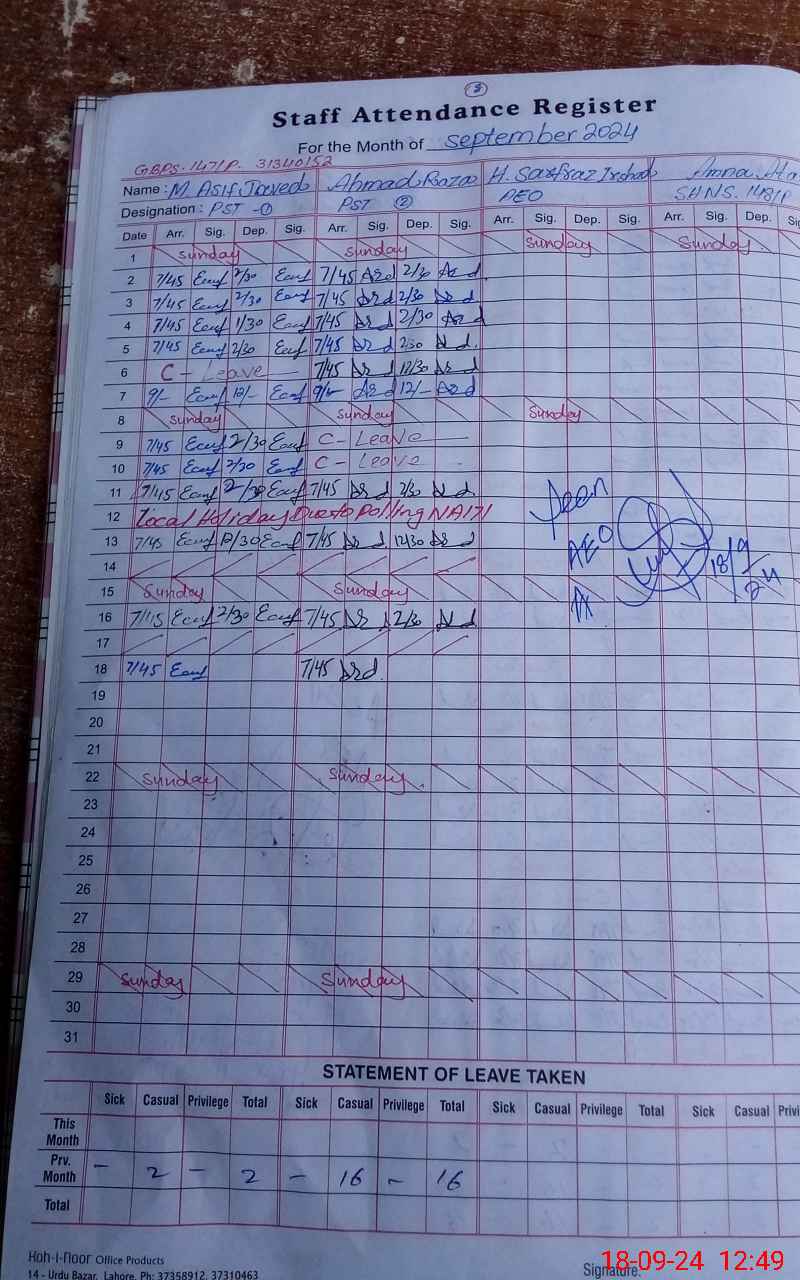 3
Staff Attendance Register
For the Month of September 2024
GBPS. 147/P. 31340152
Name : M. Asif Javed Ahmad Raza H. Sarfraz Irshad Amna
Designation : PST -① PST ② AEO SHNS. 148/P
Date Arr. Sig. Dep. Sig. Arr. Sig. Dep. Sig. Arr. Sig. Dep. Sig. Arr. Sig. Dep.
1 Sunday Sunday Sunday Sunday
2 7/45 2/30 7/45 2/30
3 7/45 2/30 7/45 2/30
4 7/45 1/30 7/45 2/30
5 7/45 2/30 7/45 2/30
6 C - Leave 7/45 12/30
7 9/- 12/- 9/- 12/-
8 Sunday Sunday Sunday
9 7/45 2/30 C - Leave
10 7/45 2/30 C - Leave
11 7/45 2/30 7/45 2/30
12 Local Holiday Due to Polling NA171
13 7/45 12/30 7/45 12/30
Seen
AEO
18/9/24
14
15 Sunday Sunday
16 7/45 2/30 7/45 2/30
17
18 7/45 7/45
19
20
21
22 Sunday Sunday
23
24
25
26
27
28
29 Sunday Sunday
30
31
STATEMENT OF LEAVE TAKEN
Sick Casual Privilege Total Sick Casual Privilege Total Sick Casual Privilege Total Sick Casual Privi
This Month
Prv. Month - 2 - 2 - 16 - 16
Total
Koh-i-noor Office Products
14 - Urdu Bazar, Lahore, Ph: 37358912, 37310463
Signature.
18-09-24 12:49